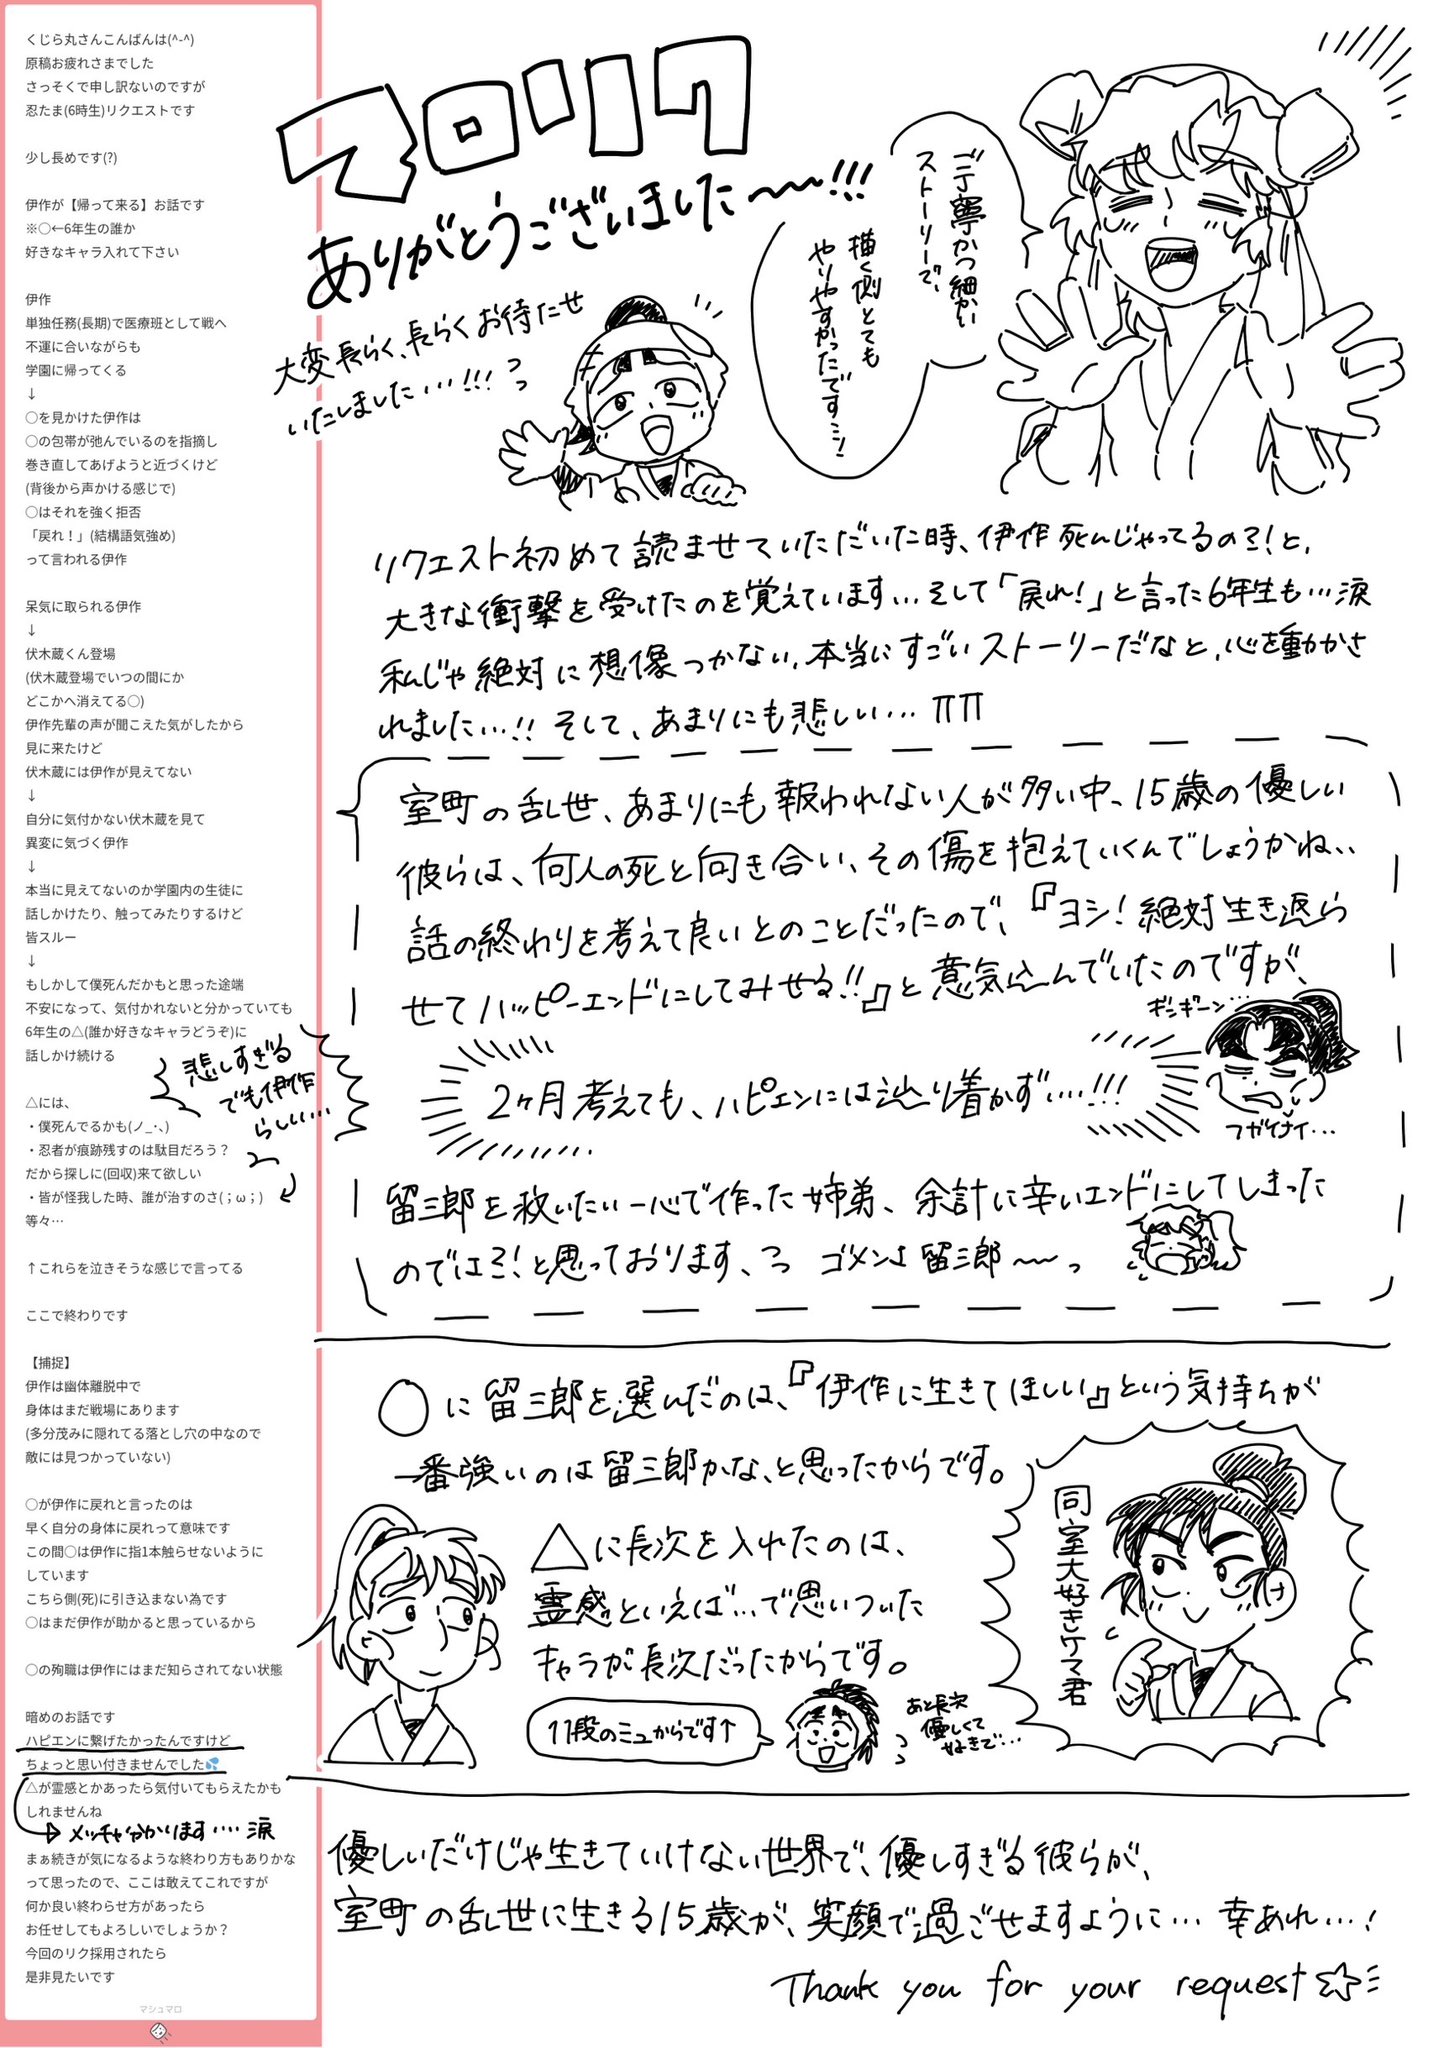 くじら丸さんこんばんは(^-^)
原稿お疲れさまでした
さっそくで申し訳ないのですが
忍たま(6時生)リクエストです
少し長めです(?)
伊作が【帰って来る】お話です
※○←6年生の誰か
好きなキャラ入れて下さい
伊作
単独任務(長期)で医療班として戦へ
不運に合いながらも
学園に帰ってくる
↓
○を見かけた伊作は
○の包帯が弛んでいるのを指摘し
巻き直してあげようと近づくけど
(背後から声かける感じで)
○はそれを強く拒否
「戻れ！」(結構語気強め)
って言われる伊作
呆気に取られる伊作
↓
伏木蔵くん登場
(伏木蔵登場でいつの間にか
どこかへ消えてる○)
伊作先輩の声が聞こえた気がしたから
見に来たけど
伏木蔵には伊作が見えてない
↓
自分に気付かない伏木蔵を見て
異変に気づく伊作
↓
本当に見えてないのか学園内の生徒に
話しかけたり、触ってみたりするけど
皆スルー
↓
もしかして僕死んだかもと思った途端
不安になって、気付かれないと分かっていても
6年生の△(誰か好きなキャラどうぞ)に
話しかけ続ける
△には、
・僕死んでるかも(ノ_･､)
・忍者が痕跡残すのは駄目だろう？
だから探しに(回収)来て欲しい
・皆が怪我した時、誰が治すのさ( ; ω ; )
等々…
↑これらを泣きそうな感じで言ってる
ここで終わりです
【捕捉】
伊作は幽体離脱中で
身体はまだ戦場にあります
(多分茂みに隠れてる落とし穴の中なので
敵には見つかっていない)
○が伊作に戻れと言ったのは
早く自分の身体に戻れって意味です
この間○は伊作に指1本触らせないように
しています
こちら側(死)に引き込まない為です
○はまだ伊作が助かると思っているから
○の殉職は伊作にはまだ知らされてない状態
暗めのお話です
ハピエンに繋げたかったんですけど
ちょっと思い付きませんでした💦
△が霊感とかあったら気付いてもらえたかも
しれませんね
メッチャ分かります…涙
まぁ続きが気になるような終わり方もありかな
って思ったので、ここは敢えてこれですが
何か良い終わらせ方があったら
お任せしてもよろしいでしょうか？
今回のリク採用されたら
是非見たいです
マシュマロ
悲しすぎる
でも伊作
らしい…
マロリク
ありがとうございました〜〜!!!
大変長らく、長らくお待たせ
いたしました…!!!
ご丁寧かつ細かい
ストーリーで、
描く側とても
やりやすかったです…!
リクエスト初めて読ませていただいた時、伊作死んじゃってるの?!と、
大きな衝撃を受けたのを覚えています…そして「戻れ！」と言った6年生も…涙
私じゃ絶対に想像つかない、本当にすごいストーリーだなと、心を動かさ
れました…!! そして、あまりにも悲しい… ΠΠ
室町の乱世、あまりにも報われない人が多い中、15歳の優しい
彼らは、何人の死と向き合い、その傷を抱えていくんでしょうかね、、
話の終わりを考えて良いとのことだったので、『ヨシ！絶対生き返ら
せてハッピーエンドにしてみせる!!』と意気込んでいたのですが、
ギンギーン…
2ヶ月考えても、ハピエンには辿り着かず…!!!
フガイナイ…
留三郎を救いたい一心で作った姉弟、余計に辛いエンドにしてしまった
のでは?!と思っております、っっ ゴメンよ留三郎〜〜っ
○に留三郎を選んだのは、『伊作に生きてほしい』という気持ちが
一番強いのは留三郎かな、と思ったからです。
同室大好きケマ君
△に長次を入れたのは、
霊感といえば…で思いついた
キャラが長次だったからです。
11段のミュからです↑
あと長次
優しくて
好きで…
優しいだけじゃ生きていけない世界で、優しすぎる彼らが、
室町の乱世に生きる15歳が、笑顔で過ごせますように… 幸あれ…！
Thank you for your request☆